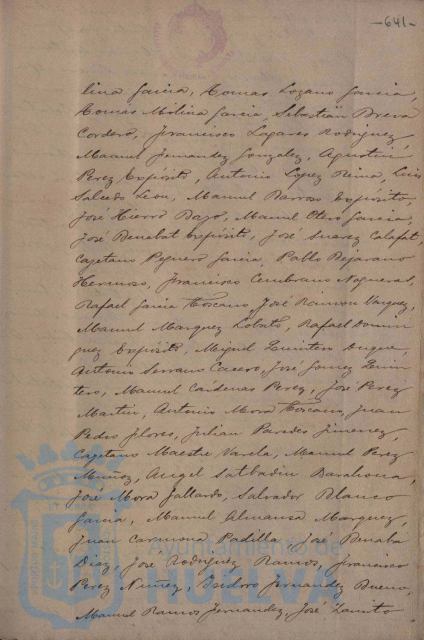 -641-
lina Garcia, Tomas Lozano Garcia,
Tomas Molina Garcia, Sebastian Breva
Cordero, Francisco Lagares Rodriguez,
Manuel Fernandez Gonzalez, Agustin
Perez Expósito, Antonio Lopez Reina, Luis
Salcedo Leon, Manuel Barroso Expósito,
José Hierro Bajo, Manuel Otero Garcia,
José Benabat Expósito, José Suarez Calafat,
Cayetano Piguero Garcia, Pablo Bejarano
Hermoso, Francisco Cembrano Nogueras,
Rafael Garcia Toscano, José Ramon Vazquez,
Manuel Marquez Lobato, Rafael Domin
guez Expósito, Miguel Quintero Duque,
Antonio Serrano Cacero, José Gomez Quin
tero, Manuel Cárdenas Perez, José Perez
Martin, Antonio Mora Toscano, Juan
Pedro Flores, Julian Paredes Jimenez,
Cayetano Maestre Varela, Manuel Perez
Muñoz, Angel Barahona,
José Mora Gallardo, Salvador Blanco
Garcia, Manuel Almansa Marquez,
Juan Carmona Padilla, José Benaba
Diaz, José Rodriguez Ramos, Francisco
Perez Nuñez, Isidoro Fernandez Bueno,
Manuel Ramos Fernandez, José
Ayuntamiento de
HUELVA